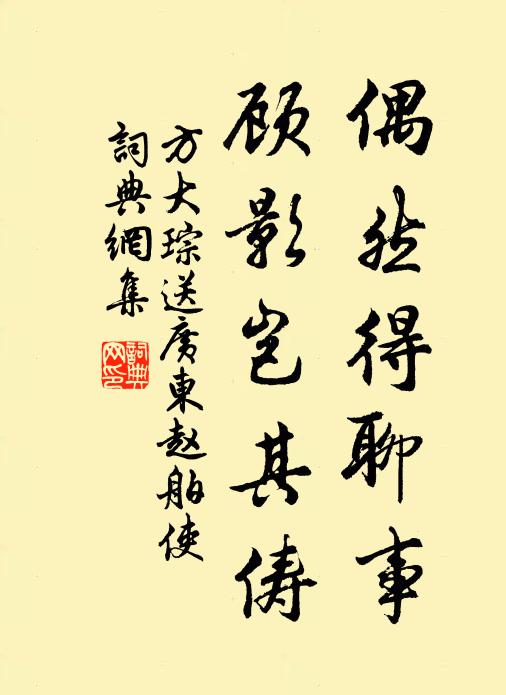 偶然得聊事
顾影岂其俦
方大琮送广東赵舶使
詞典網集
詞典网印